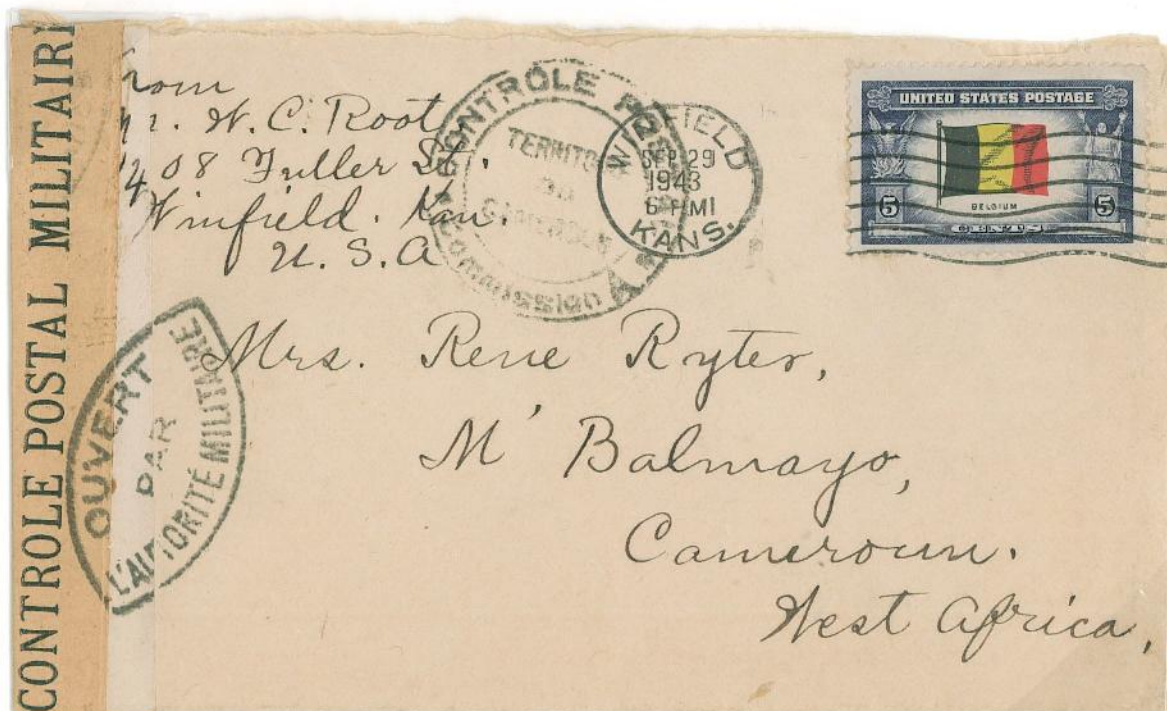 CONTROLE POSTAL MILITAIRE
From
Mr. W. C. Root
1408 Fuller St.
Winfield. Kan.
U. S. A
CONTRÔLE
Commission A
TERRITO
WINFIELD
SEP 29
1943
6 PM
KANS.
UNITED STATES POSTAGE
BELGIUM
5 CENTS 5
OUVERT
PAR
L'AUTORITÉ MILITAIRE
Mrs. Rene Ryter,
M' Balmayo,
Cameroun.
West Africa,